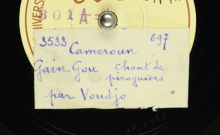 3533 Cameroun 697
Gain Gou chant de
piroguiers
par Voudjo